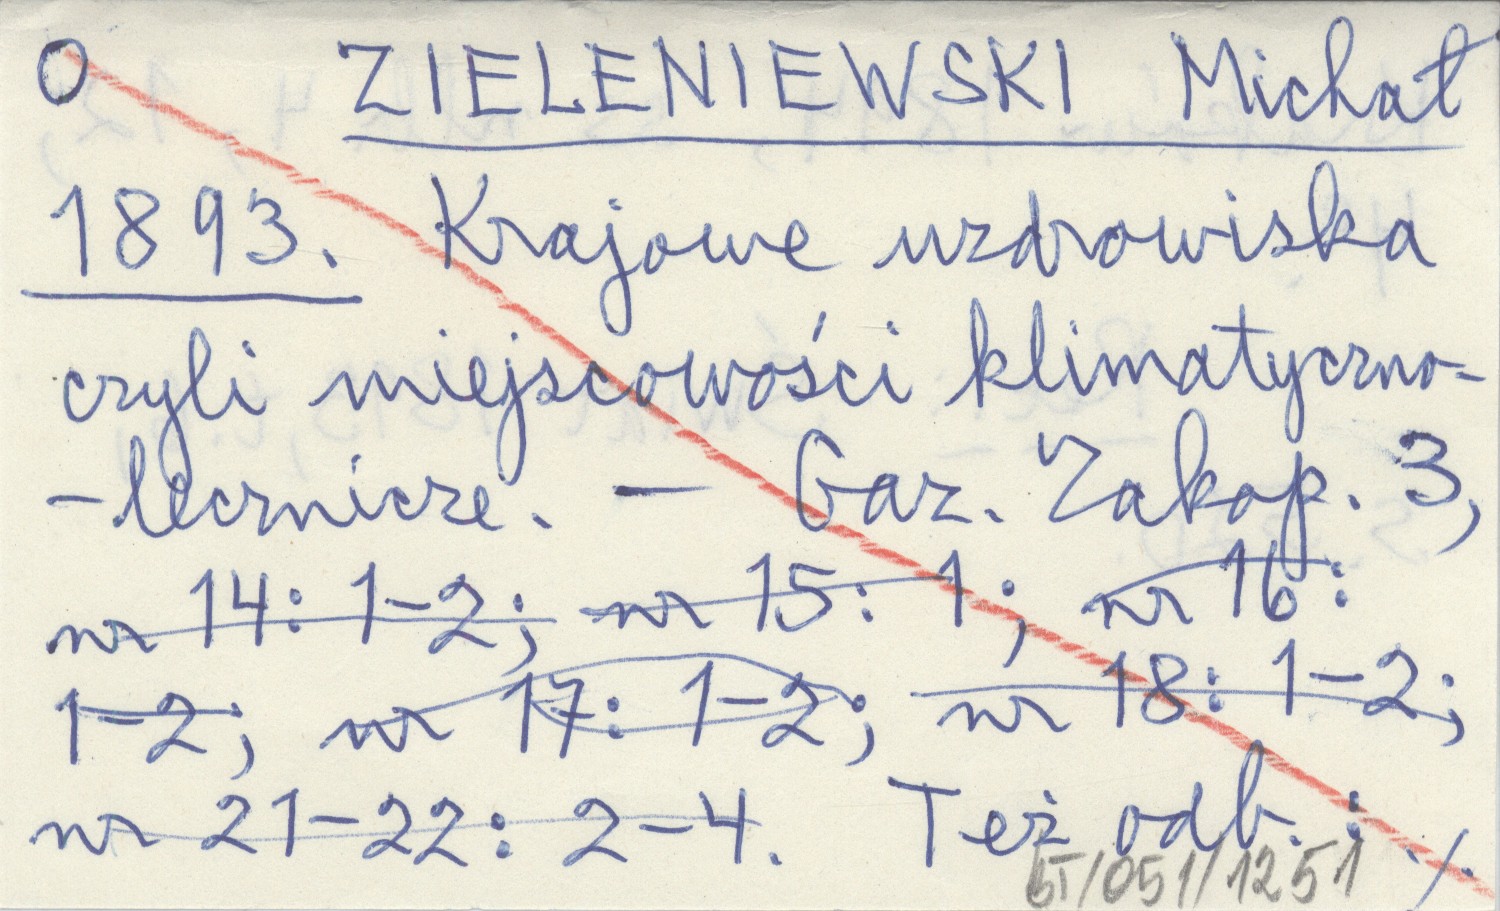 O ZIELENIEWSKI Michał
1893. Krajowe uzdrowiska
czyli miejscowości klimatyczno-
-lecznicze. — Gaz. Zakop. 3,
nr 14: 1-2; nr 15: 1; nr 16:
1-2; nr 17: 1-2; nr 18: 1-2;
nr 21-22: 2-4. Też odb.: ./.
BT/051/1251